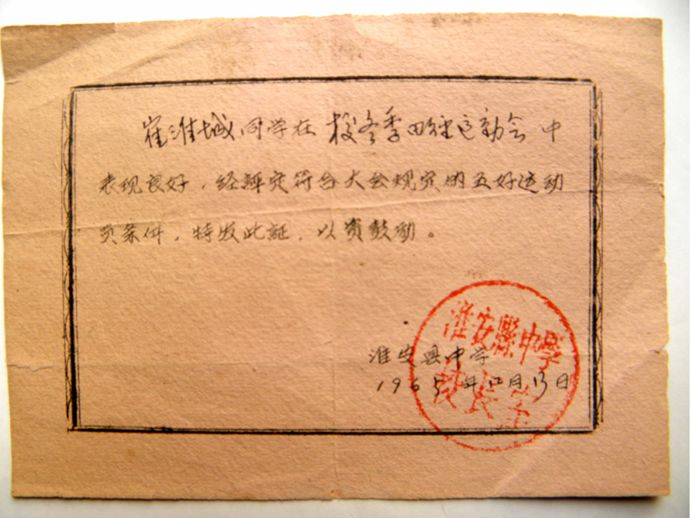 崔淮城同学在校冬季田径运动会中
表现良好，经评定符合大会规定的五好运动
员条件，特发此証，以资鼓励。
淮安县中学
1965年12月13日
淮安縣中學
校长室